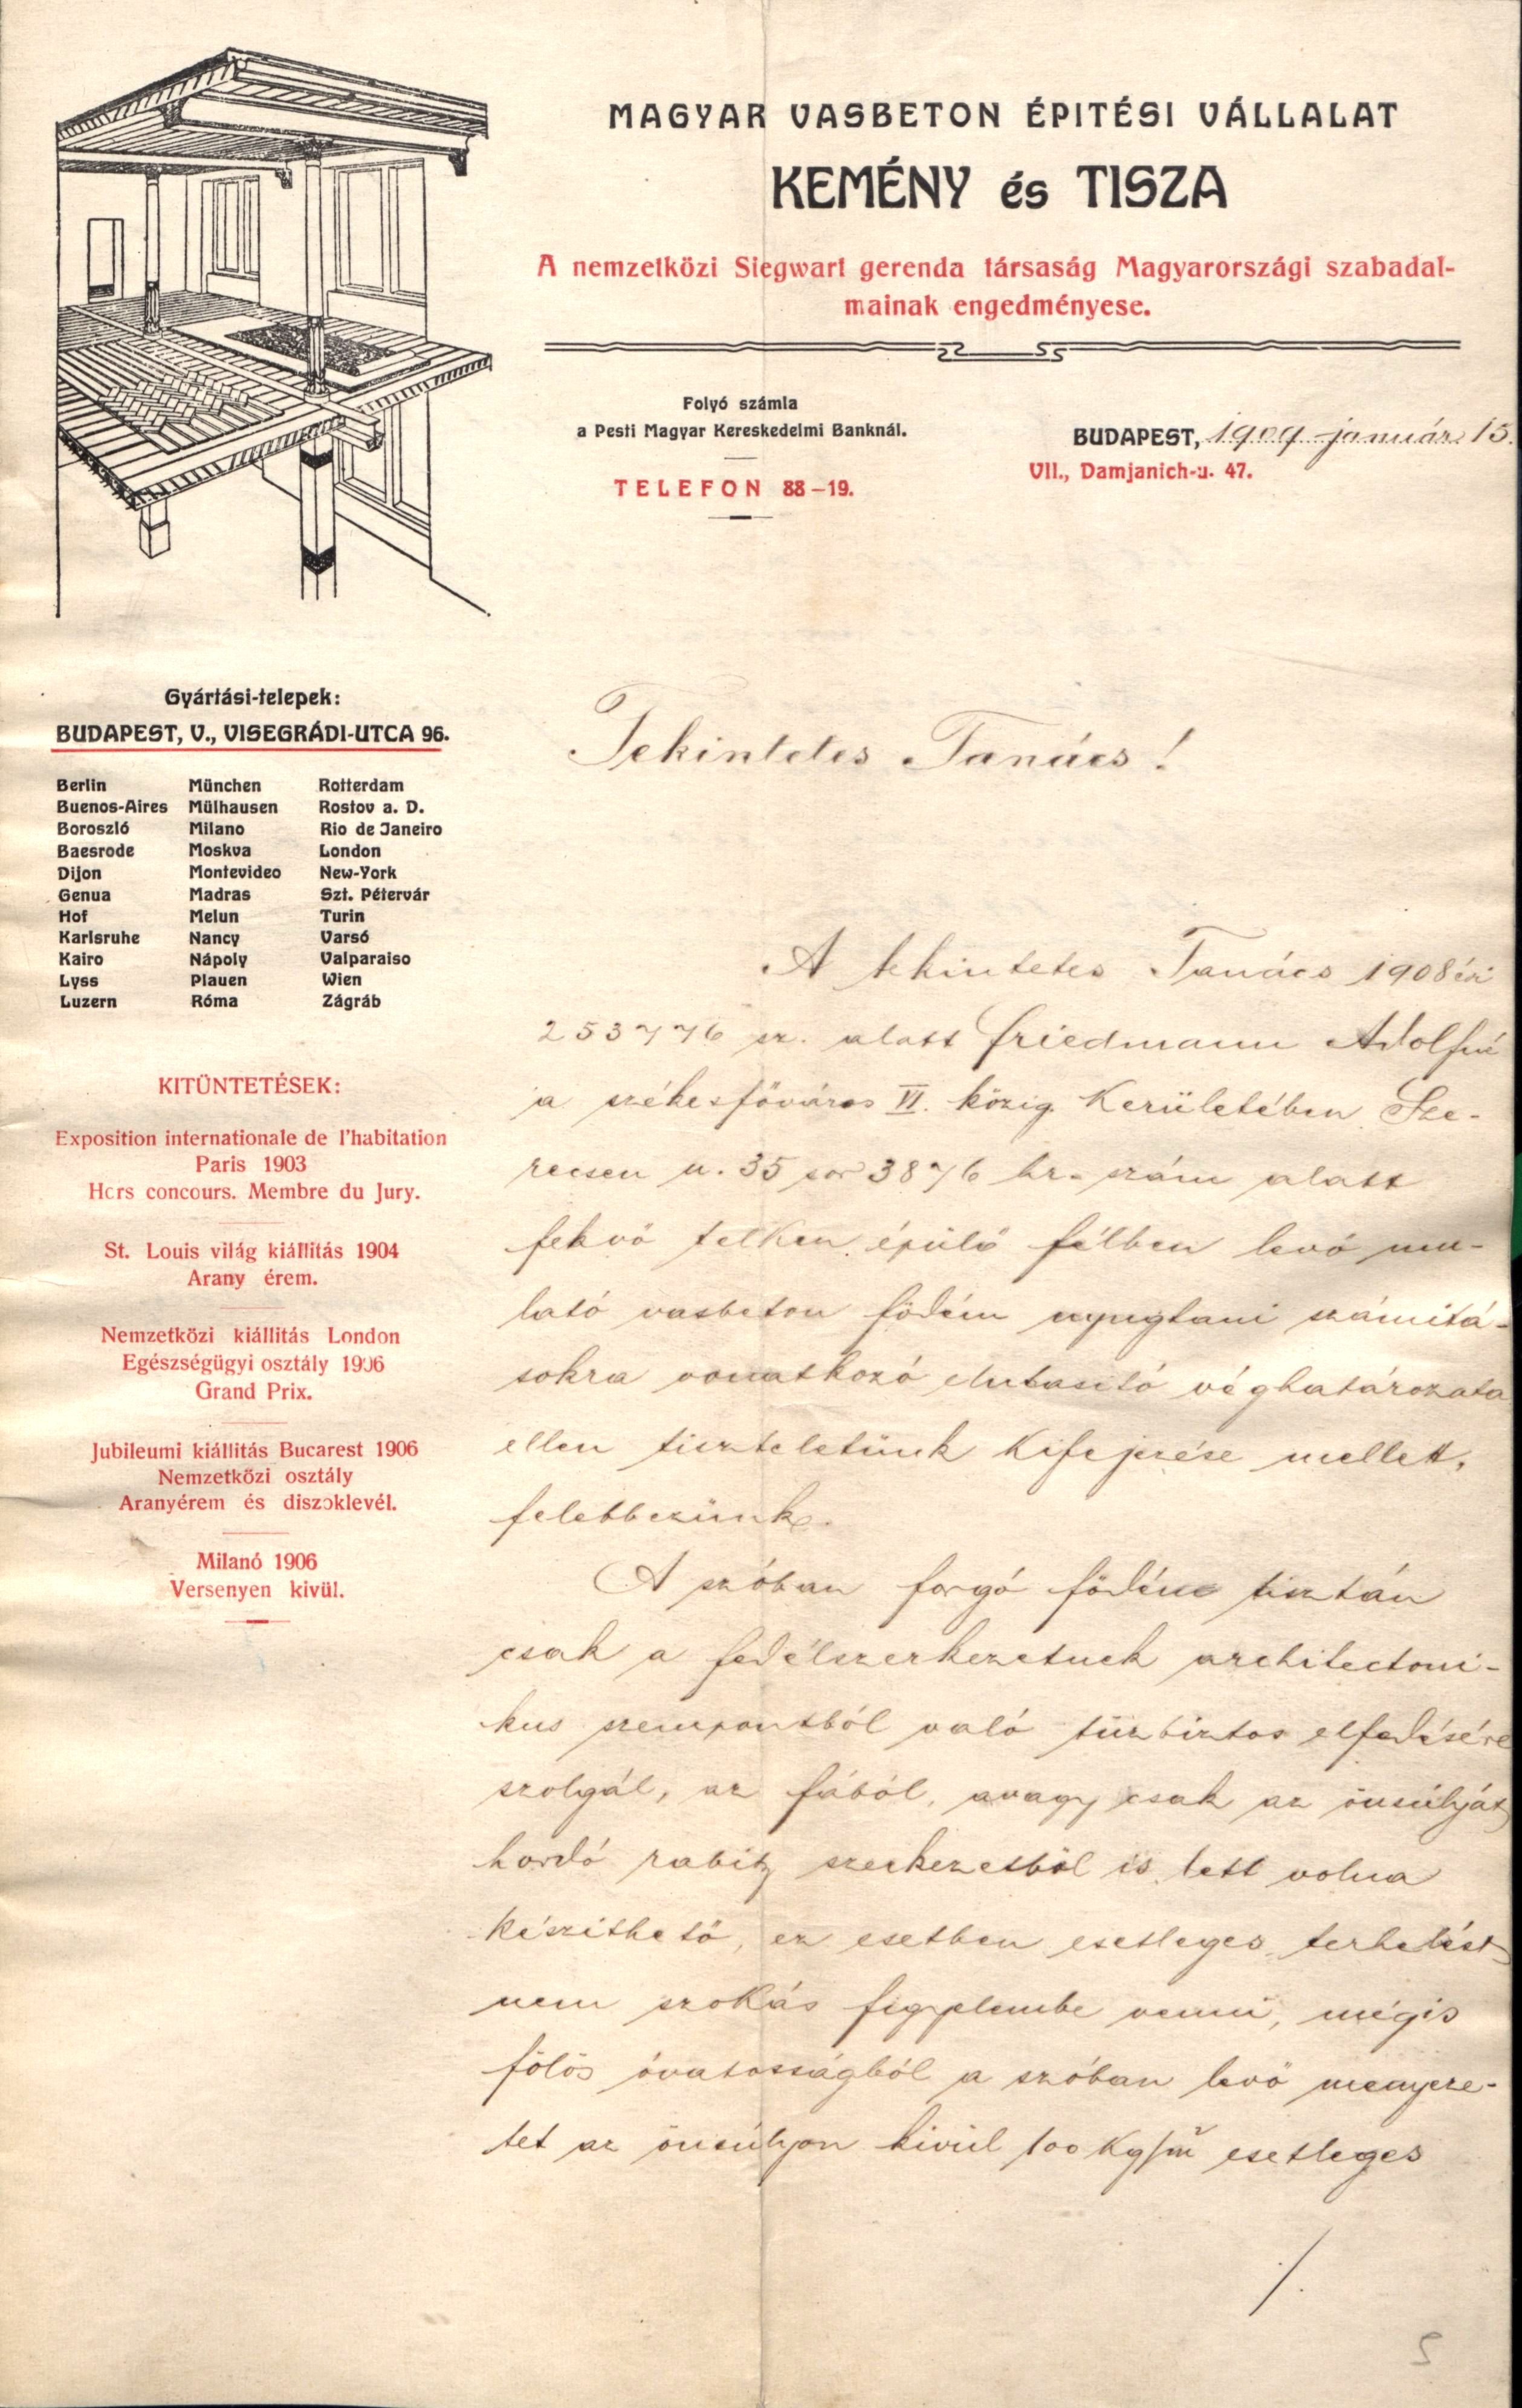 MAGYAR VASBETON ÉPITÉSI VÁLLALAT
KEMÉNY és TISZA
A nemzetközi Siegwart gerenda társaság Magyarországi szabadal-
mainak engedményese.
Folyó számla
a Pesti Magyar Kereskedelmi Banknál.
TELEFON 88–19.
BUDAPEST, 1909 január 15.
VII., Damjanich-u. 47.
Gyártási-telepek:
BUDAPEST, V., VISEGRÁDI-UTCA 96.
Berlin München Rotterdam
Buenos-Aires Mülhausen Rostov a. D.
Boroszló Milano Rio de Janeiro
Baesrode Moskva London
Dijon Montevideo New-York
Genua Madras Szt. Pétervár
Hof Melun Turin
Karlsruhe Nancy Varsó
Kairo Nápoly Valparaiso
Lyss Plauen Wien
Luzern Róma Zágráb
KITÜNTETÉSEK:
Exposition internationale de l'habitation
Paris 1903
Hors concours. Membre du Jury.
St. Louis világ kiállitás 1904
Arany érem.
Nemzetközi kiállitás London
Egészségügyi osztály 1906
Grand Prix.
Jubileumi kiállitás Bucarest 1906
Nemzetközi osztály
Aranyérem és diszoklevél.
Milanó 1906
Versenyen kivül.
Tekintetes Tanács!
A tekintetes Tanács 1908 évi
253776 sz. alatt Friedmann Adolfné
a székesfőváros VI. közig. Kerületében Sze-
recsen u. 35 sor 3876 hr. szám alatt
fekvő telken épülő félben levő mu-
lató vasbeton födém nyugtani számitá-
sokra vonatkozó elutasító véghatározata
ellen tiszteletünk kifejezése mellett,
felebbezünk.
A szóban forgó födém tisztán
csak a fedélszerkezetnek architectoni-
kus szempontból való tűzbiztos elfedésére
szolgál, az fából, avagy csak az önsúlyát
hordó rabitz szerkezetből is lett volna
készíthető, ez esetben esetleges terhelést
nem szokás figyelembe venni, mégis
fölös óvatosságból a szóban levő menyeze-
tet az önsúlyon kivül 100 Kg/m² esetleges
./.
5